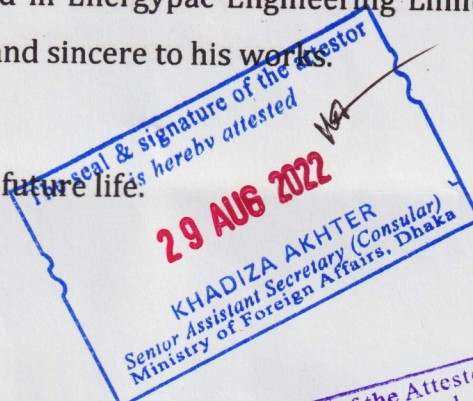 d in Energypac Engineering Lim
nd sincere to his works.
future life.
The seal & signature of the attestor
is hereby attested
29 AUG 2022
KHADIZA AKHTER
Senior Assistant Secretary (Consular)
Ministry of Foreign Affairs, Dhaka
of the Attest